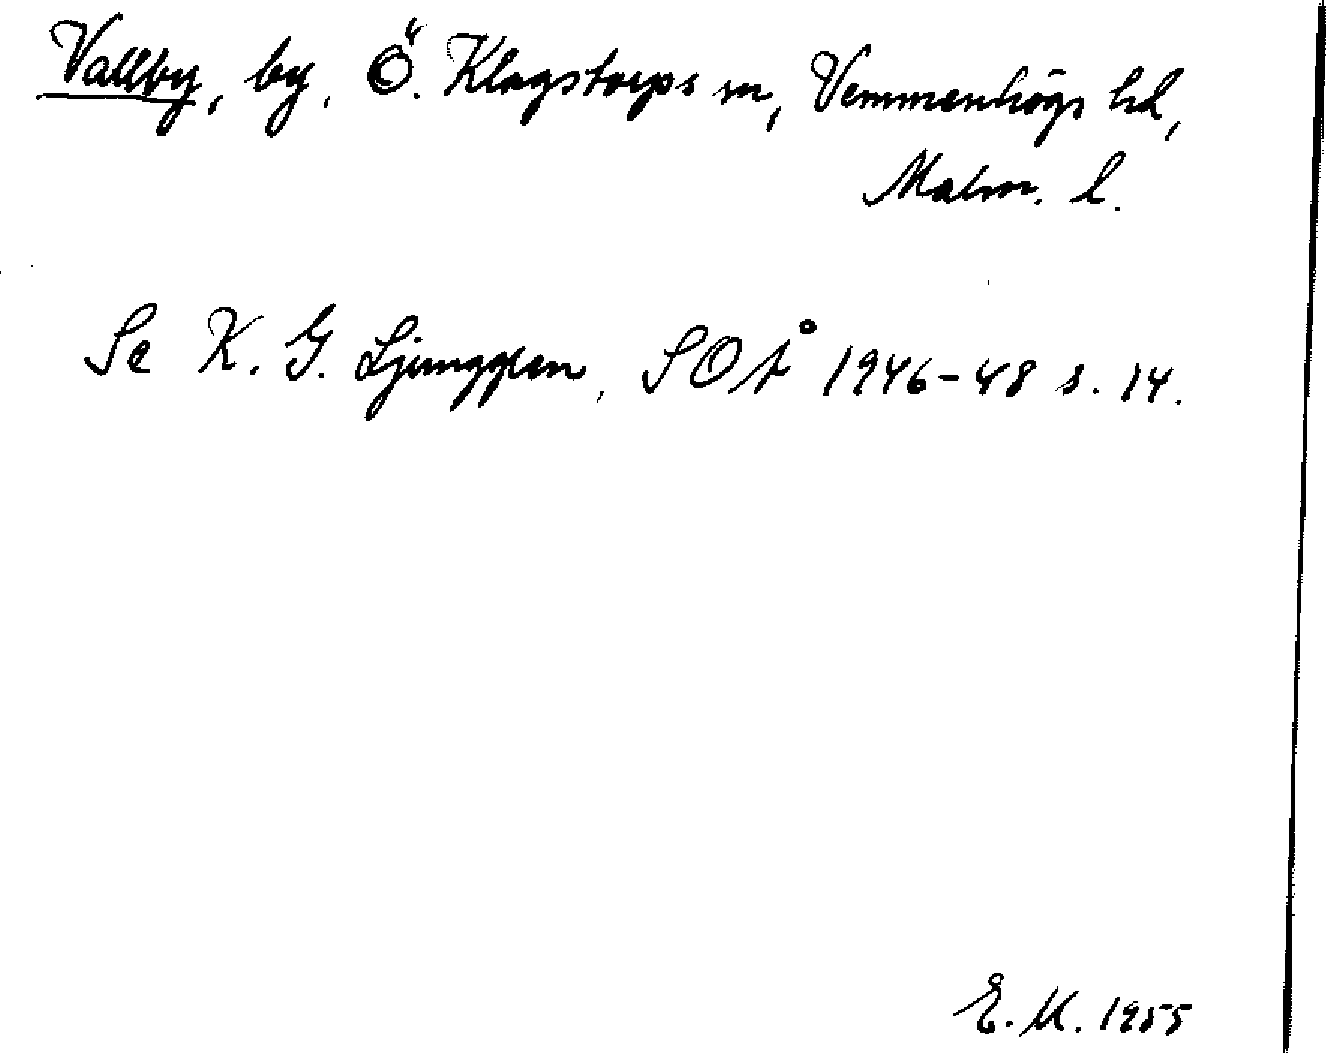 Vallby, by, Ö. Klagstorps sn, Vemmenhögs hd,
Malm. l.
Se K. G. Ljunggren, SOÅ 1946-48 s. 14.
E. M. 1955